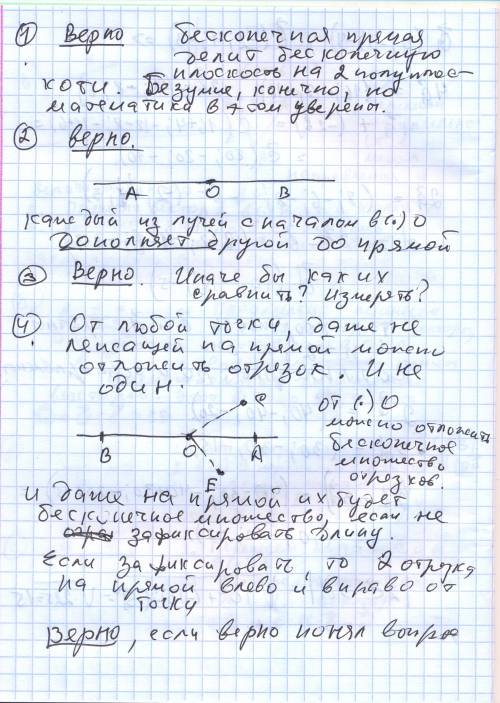 ① Верно бесконечная прямая
делит бесконечную
плоскость на 2 полуплос-
коти. Безумие, конечно, но
математика в этом уверены.
② верно.
А О В
каждый из лучей с началом в (·) О
Дополняет другой до прямой
③ Верно. Иначе бы как их
сравнить? Измерять?
④ От любой точки, даже не
лежащей на прямой можно
отложить отрезок. И не
один.
от (·) О
можно отложить
бесконечное
множество
отрезков.
С
В О А
Е
и даже на прямой их будет
бесконечное множество, если не
зафиксировать длину.
Если зафиксировать, то 2 отрезка
на прямой влево и вправо от
точки
Верно, если верно понял вопро